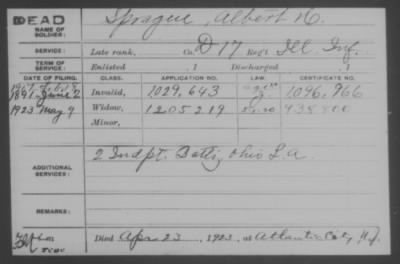 DEAD
NAME OF SOLDIER: Sprague, Albert H.
SERVICE: Late rank, Co. D 17 Reg't Ill. Inf.
TERM OF SERVICE: Enlisted , 1 Discharged , 1
DATE OF FILING. CLASS. APPLICATION NO. LAW. CERTIFICATE NO.
1891 June 2 Invalid, 1,029,643 1,096,966
1923 May 9 Widow, 1205219 938800
Minor,
ADDITIONAL SERVICES: 2 Indpt. Batty. Ohio L.A.
REMARKS:
Died Apr 23, 1923, at Atlantic City, N.J.